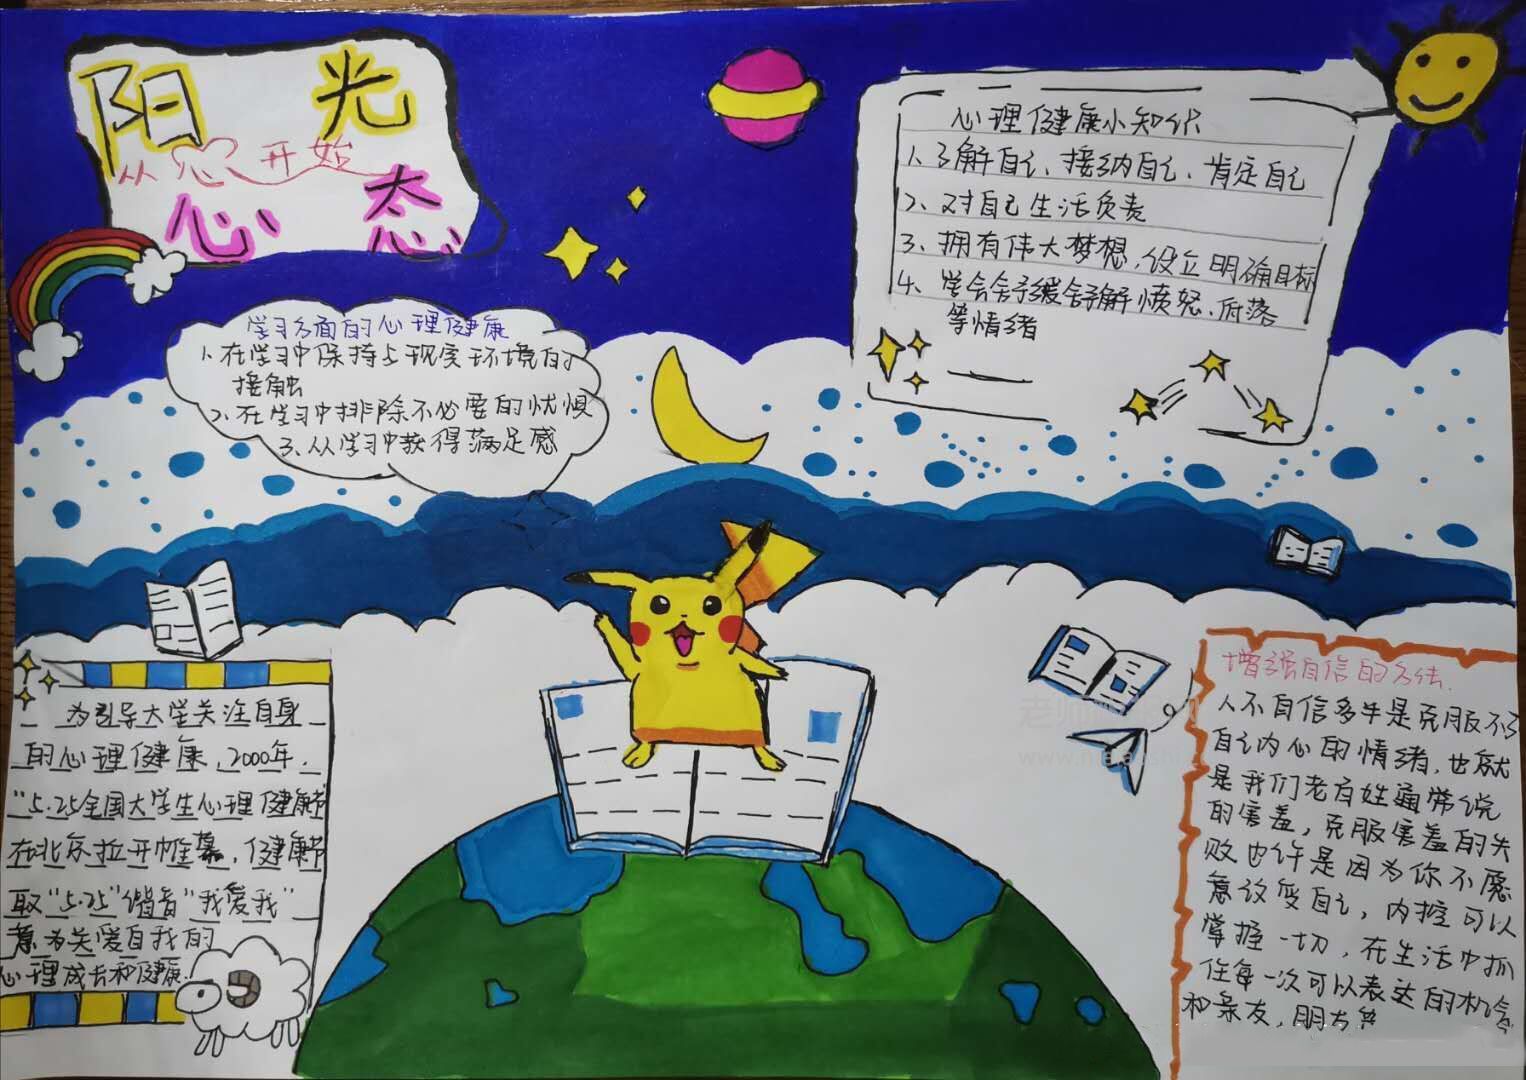 阳光
从心开始
心态
心理健康小知识
1、了解自己、接纳自己、肯定自己
2、对自己生活负责
3、拥有伟大梦想,设立明确目标
4、学会舒缓舒解愤怒、低落
等情绪
学习方面的心理健康
1、在学习中保持与现实环境的
接触
2、在学习中排除不必要的忧惧
3、从学习中获得满足感
为引导大学关注自身
的心理健康,2000年,
"5.25全国大学生心理健康节
在北京拉开帷幕,健康节
取"5.25"谐音"我爱我"
意为关爱自我的
心理成长和健康.
增强自信的方法.
人不自信多半是克服不了
自己内心的情绪,也就
是我们老百姓通常说
的害羞,克服害羞的失
败也许是因为你不愿
意改变自己,内控可以
掌握一切,在生活中抓
住每一次可以表达的机会
和亲友,朋友等